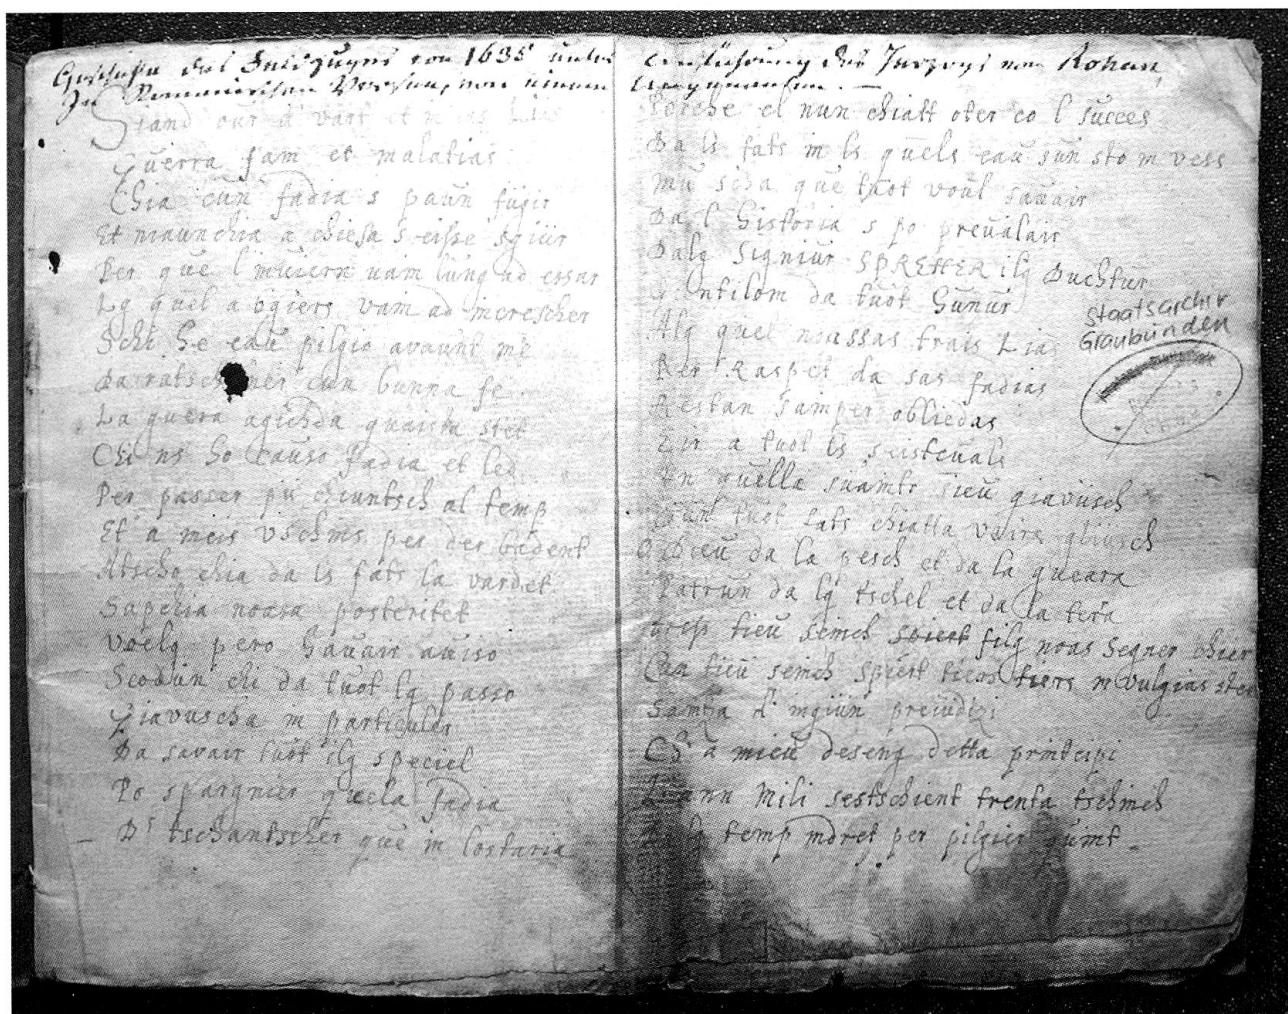 Geschichte des Feldzuges von 1635 unter Anführung des Herzogs von Rohan,
In Romanischen Versen, von einem
Stand our d vart et
Guerra fam et malatias
Chia cun fadia s paun fügir
Et maunchia a chiesa s eisse sgiür
Per que l'inviern vain lung ad essar
Lg quel a ogiers vain ad increscher
Schi he eau pilgio avaunt me
Da ratsch her cun bunna fe
La guera agiehda quaista stet
Chi ns ho causo fadia et led
Per passer pü chiuntsch al temp
Et a meis vschins per der badent
Atscho chia da ls fats la vardet
Sapchia noasa posteritet
Voelg pero havair aviso
Scodün chi da tuot lg passo
Giavuscha in particuler
Da savair tuot ilg speciel
Po spargnier quela fadia
Dr tschantscher que in lostaria
Perche el nun chiatt oter co l succes
Da ls fats in ls quels eau sun sto in vess
Mu scha que tuot voul savair
Da l historia s po prevalair
Dalg Signiur SPREHER ilg Duchtur
Gentilom da tuot hunur
Alg quel noassas trais Lias
Per Raspet da sas fadias
Restan saimper obliedas
Zir a tuot ls
In quella suainter sieu giavüsch
tuot fats chiatta vaira gliüsch
O Dieu da la pesch et da la gueara
Patrun da lg tschel et da la tera
tieu seinch spiert filg noas Segner chier
Cun tieu seinch spiert tiers tiers in vulgias ster
Sainza d' ingiün preiudizi
Ch' a mieu deseng detta printcipi
L'ann Milli sestschient trenta tschinch
Da lg temp indret per pilgier quint
Staatsarchiv
Graubünden